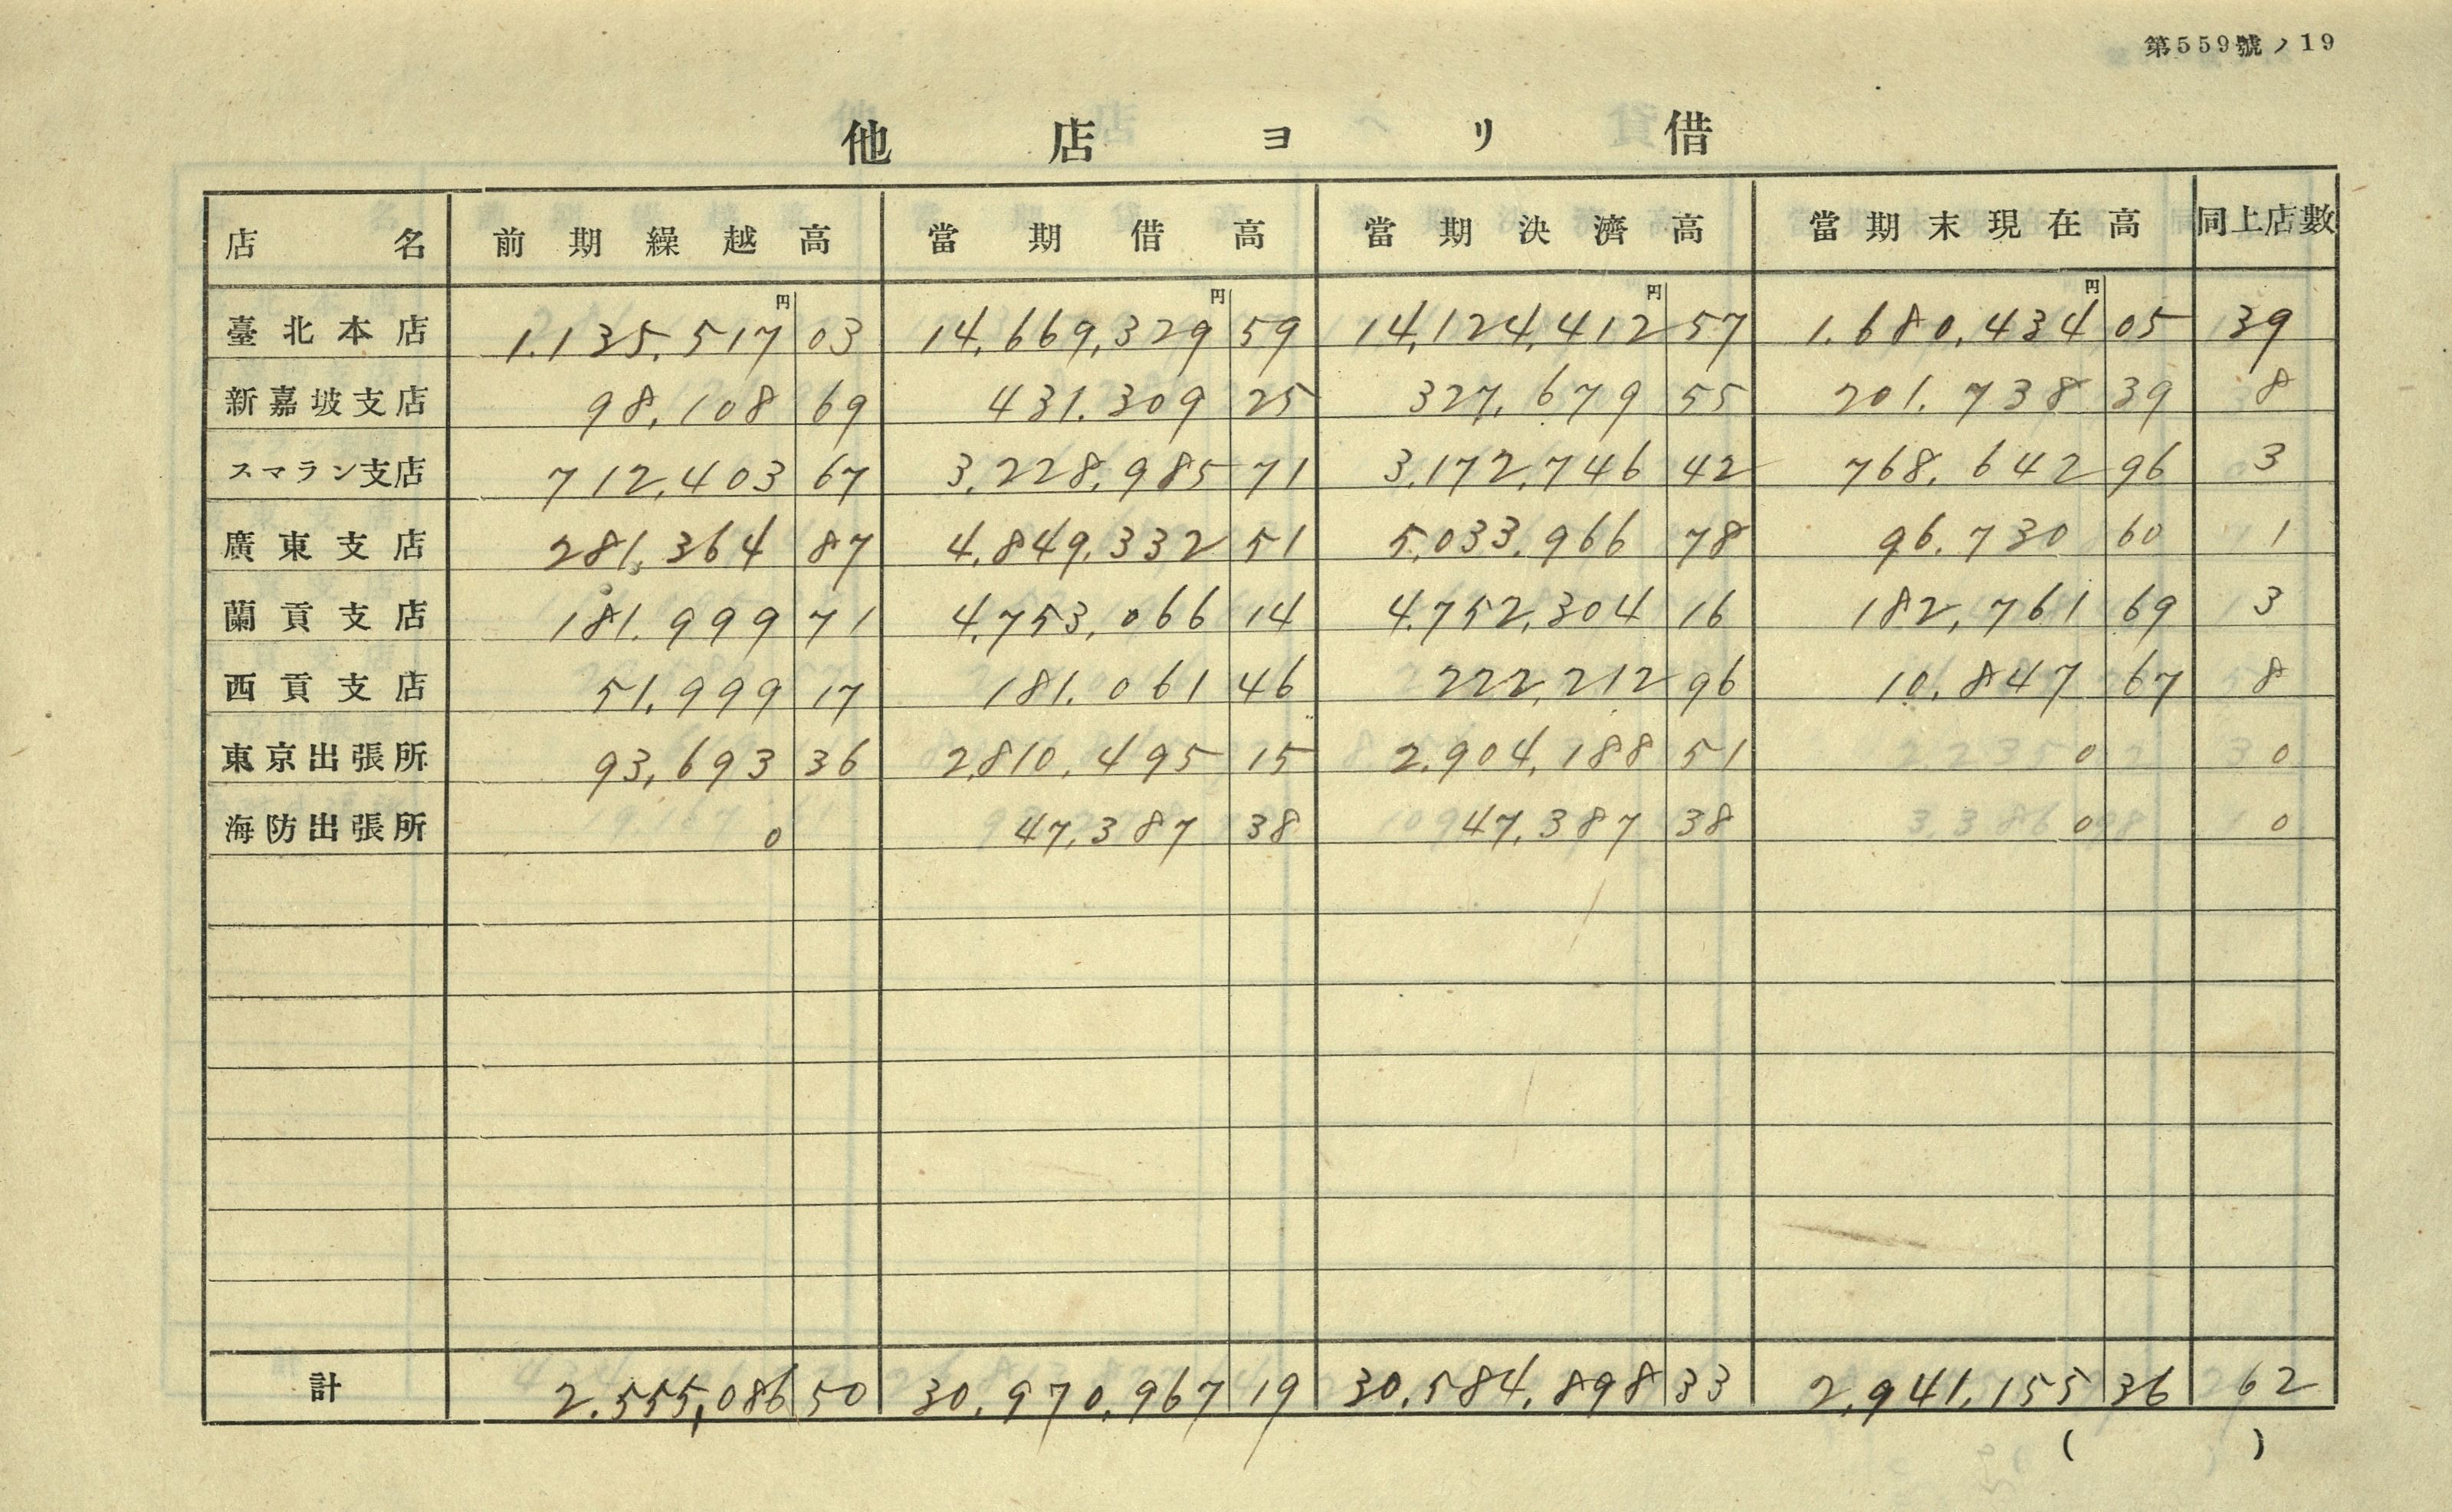 第559號ノ19
他店ヨリ借
店名 前期繰越高 當期借高 當期決濟高 當期末現在高 同上店數
円 円 円 円
臺北本店 1.135.517 03 14.669.329 59 14,124,412 57 1.680.434 05 39
新嘉坡支店 98,108 69 431.309 25 327.679 55 201.738 39 8
スマラン支店 712,403 67 3.228.985 71 3.172.746 42 768.642 96 3
廣東支店 281,364 87 4.849.332 51 5.033.966 78 96.730 60 1
蘭貢支店 181.999 71 4.753,066 14 4.752,304 16 182,761 69 3
西貢支店 51,999 17 181.061 46 222,212 96 10.847 67 8
東京出張所 93,693 36 2,810.495 15 2.904,188 51 0 0
海防出張所 0 47,387 38 47,387 38 0 0
計 2.555,086 50 30.970.967 19 30.584.898 33 2,941,155 36 62
( )